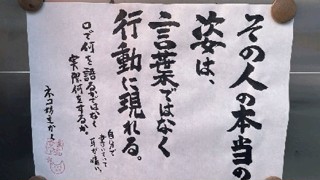 その人の本当の
姿は、
言葉ではなく
行動に現れる。
口で何を語るかではなく
実際何をするか。
自分で
書いていて
耳が痛い。
ネコ坊主かよ